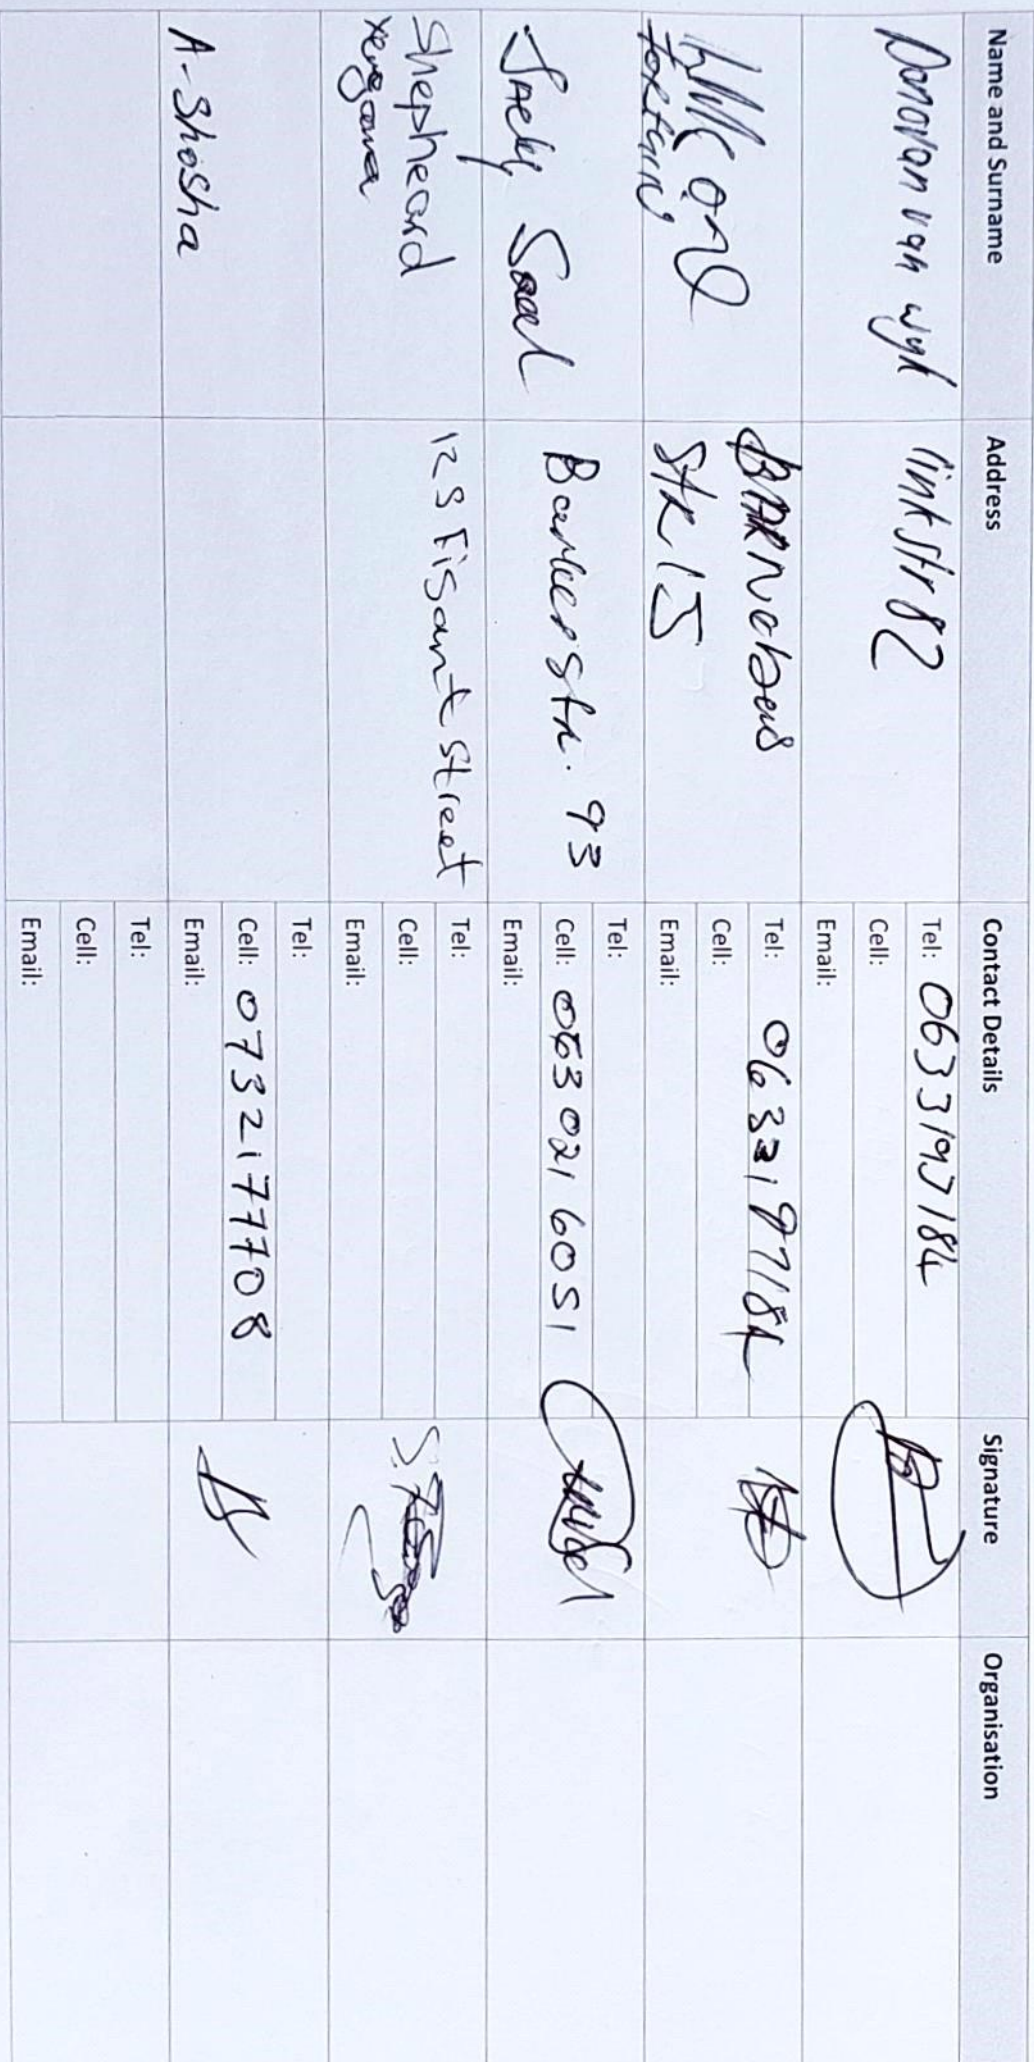 Name and Surname Address Contact Details Signature Organisation
Donovan van wyk link str 82 Tel: 0633197184
Cell:
Email:
Tel: 0633197184
Str 15 Cell:
Email:
Tel:
Saal Str. 93 Cell: 063 021 6051
Email:
Shepheard 123 Fisant street Tel:
Cell:
Email:
Tel:
A-Shosha Cell: 0732177708
Email:
Tel:
Cell:
Email: